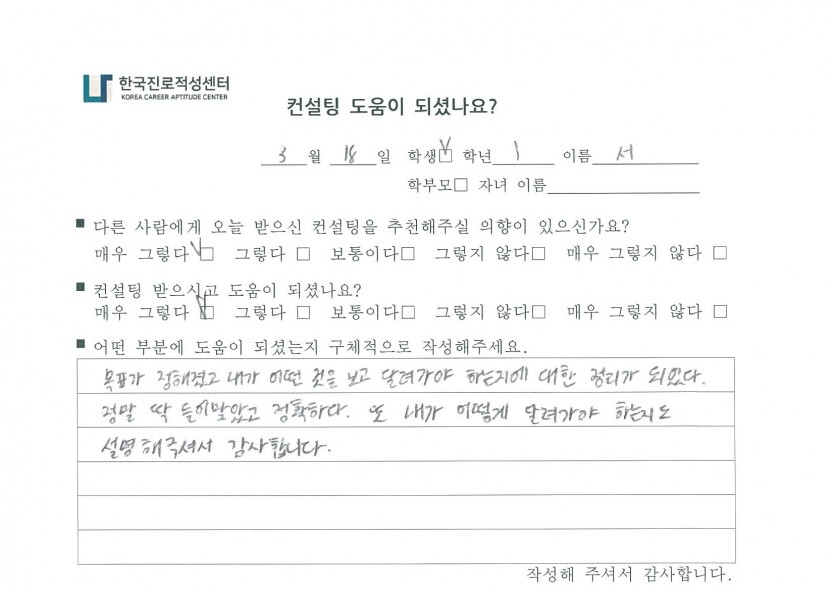 한국진로적성센터
KOREA CAREER APTITUDE CENTER
컨설팅 도움이 되셨나요?
3월 18일 학생☑ 학년 1 이름 서
학부모□ 자녀 이름
■ 다른 사람에게 오늘 받으신 컨설팅을 추천해주실 의향이 있으신가요?
매우 그렇다☑ 그렇다 □ 보통이다□ 그렇지 않다□ 매우 그렇지 않다 □
■ 컨설팅 받으시고 도움이 되셨나요?
매우 그렇다☑ 그렇다 □ 보통이다□ 그렇지 않다□ 매우 그렇지 않다 □
■ 어떤 부분에 도움이 되셨는지 구체적으로 작성해주세요.
목표가 정해졌고 내가 어떤 것을 보고 달려가야 하는지에 대한 정리가 되었다.
정말 딱 들어맞았고 정확하다. 또 내가 어떻게 달려가야 하는지도
설명해주셔서 감사합니다.
작성해 주셔서 감사합니다.